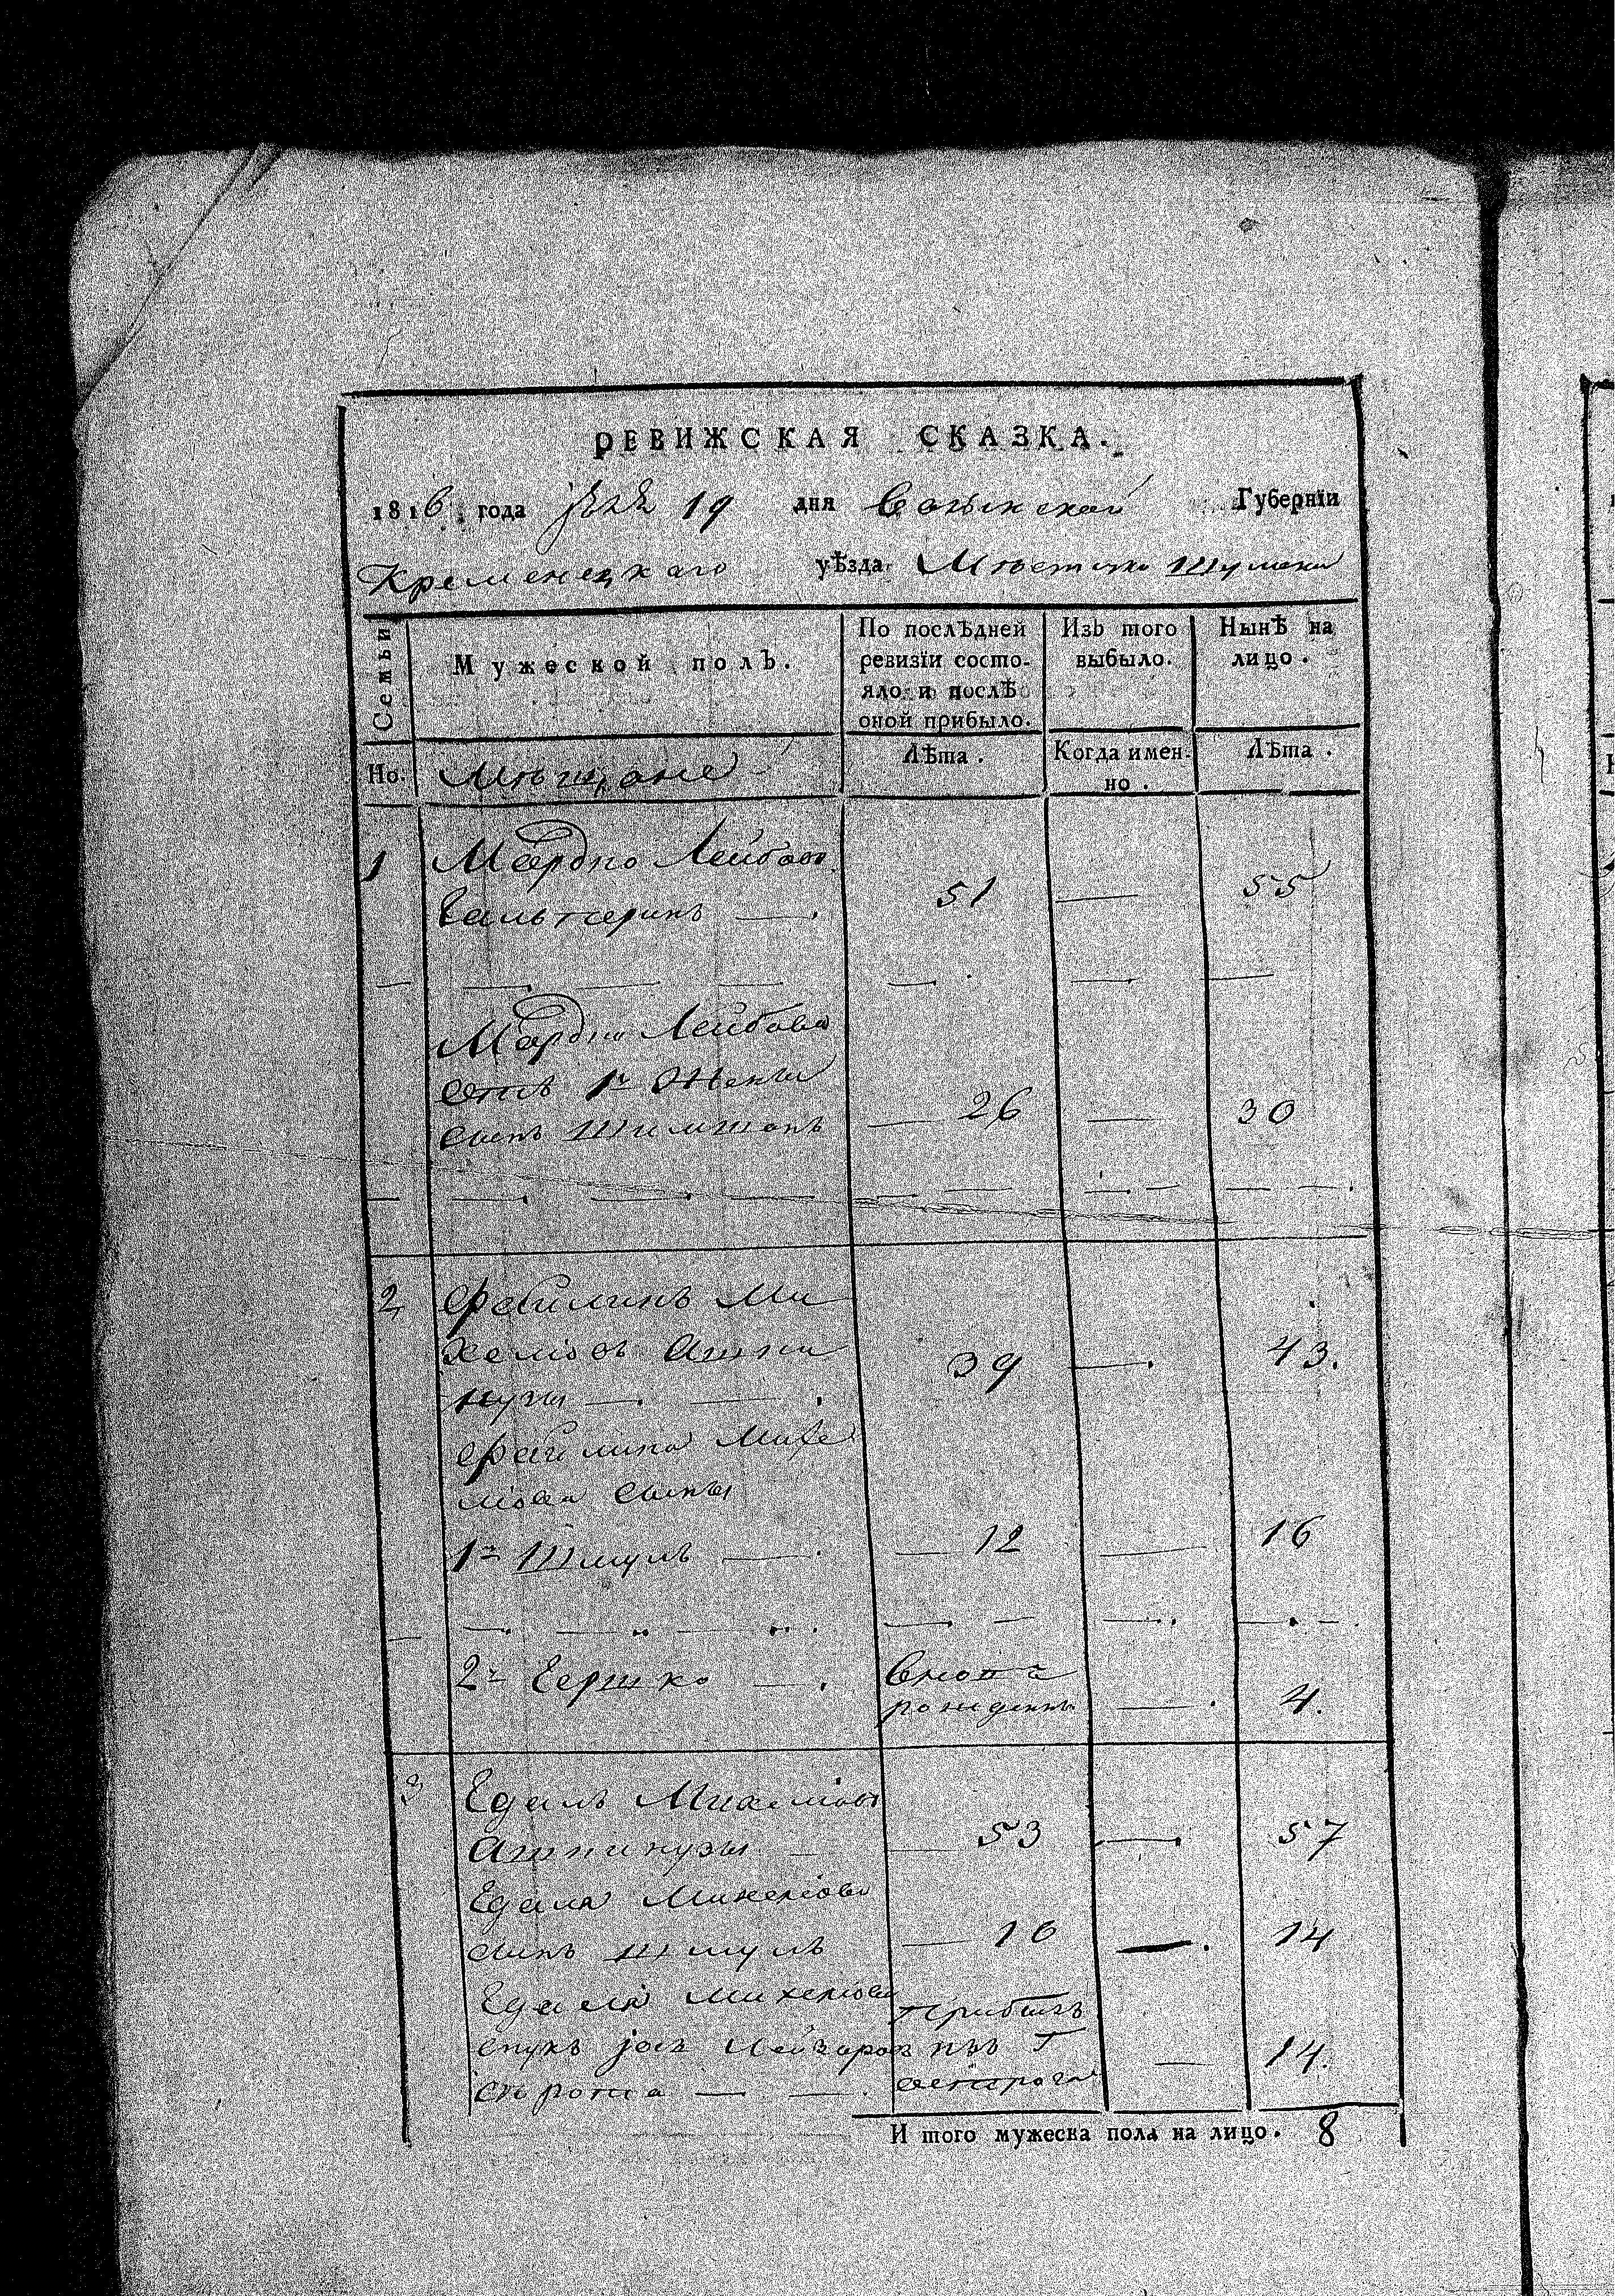 РЕВИЖСКАЯ СКАЗКА.
1816 года 19 дня Волынской Губернїи
Кременецкаго уѣзда Мѣстечка Шумска
Семьи
Мужеской полъ.
По послѣдней ревизїи состо-
яло и послѣ
оной прибыло.
Изъ того
выбыло.
Нынѣ на
лицо.
Но.
Мѣщане
Лѣта.
Когда имен-
но.
Лѣта.
1 Мордко Лейбовъ
51 — 55
Мордка Лейбова
отъ 1й Жены
сынъ Шимшонъ — 26 — 30
2 Файлинъ Ми
хелiовъ Ашпи 39 — 43.
нузы
Файлина Михе
лiова сыны
1й Шмуль — 12 — 16
2й Гершко — Вновь
рожденъ — 4.
3 Едаль Михелiовъ
Ашпинузы — 53 — 57
Едаля Михелiова
сынъ Шмуль — 10 — 14
Едаля Михелiова прибылъ
внукъ Iось изъ Г
сирота — Острога — 14.
И того мужеска пола на лицо. 8